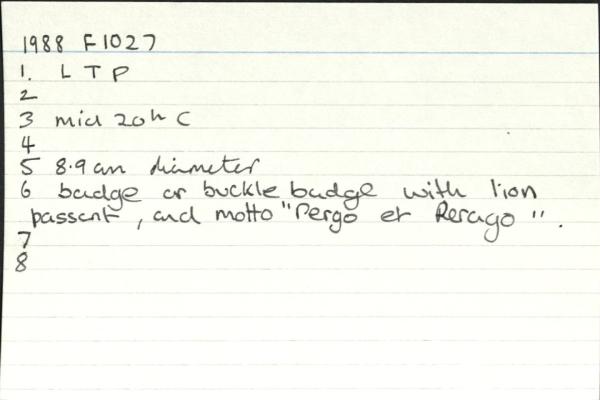 1988 F1027
1. L T P
2
3 mid 20th C
4
5 8.9 cm diameter
6 badge or buckle badge with lion
passant, and motto "Pergo et Perago".
7
8